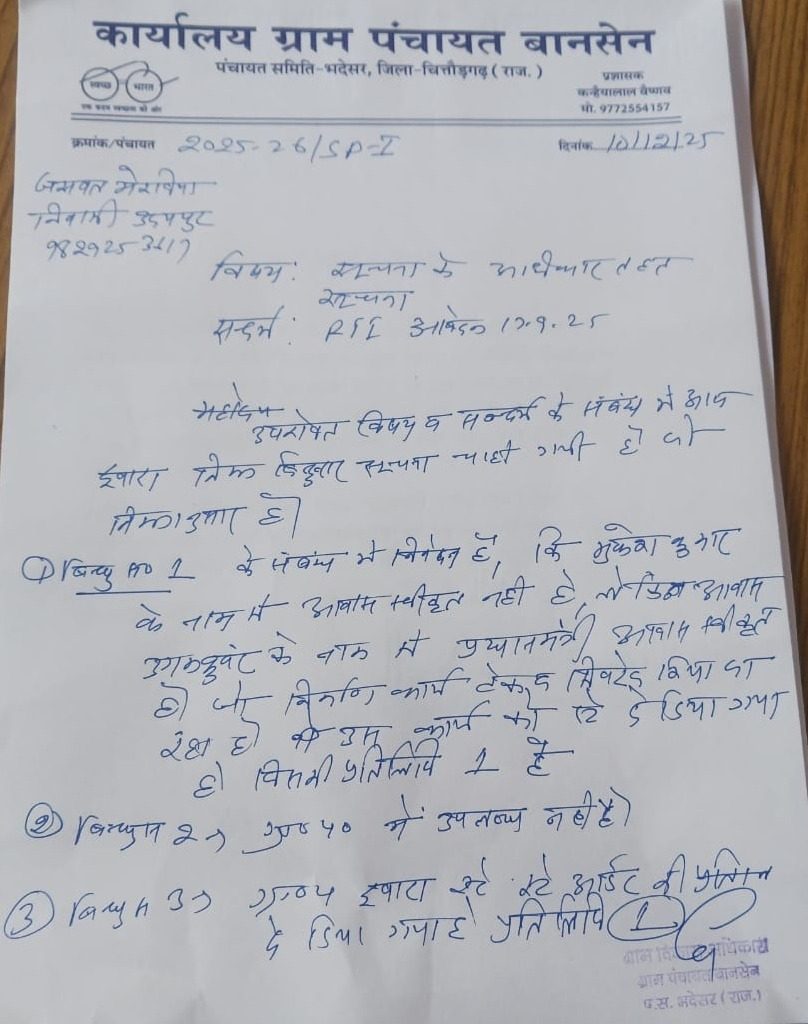 कार्यालय ग्राम पंचायत बानसेन
पंचायत समिति-भदेसर, जिला-चित्तौड़गढ़ ( राज. )
स्वच्छ भारत
एक कदम स्वच्छता की ओर
प्रशासक
कन्हैयालाल वैष्णव
मो. 9772554157
क्रमांक/पंचायत 2025-26/SP-I
दिनांक 10/12/25
निवासी उदयपुर
विषय: सूचना के अधिकार तहत
सूचना
सन्दर्भ: RTI आवेदन 17.9.25
महोदय
उपरोक्त विषय व सन्दर्भ के संबंध में आप
द्वारा निम्न बिंदुवार सूचना चाही गयी है जो
निम्नानुसार है।
① बिन्दु no 1 के संबंध में निवेदन है, कि मुकेश कुमार
के नाम से आवास स्वीकृत नही है, लेकिन आवास
के नाम से प्रधानमंत्री आवास स्वीकृत
है। जो निर्माण कार्य किया जा
रहा है। उस कार्य को स्टे दे दिया गया
है। जिसकी प्रतिलिपि 1 है
② 2→ ग्रा०प० में उपलब्ध नही है।
③ 3→ द्वारा स्टे स्टे आर्डर की
दे दिया गया है प्रतिलिपि 1
ग्राम विकास अधिकारी
ग्राम पंचायत बानसेन
प.स. भदेसर (राज.)